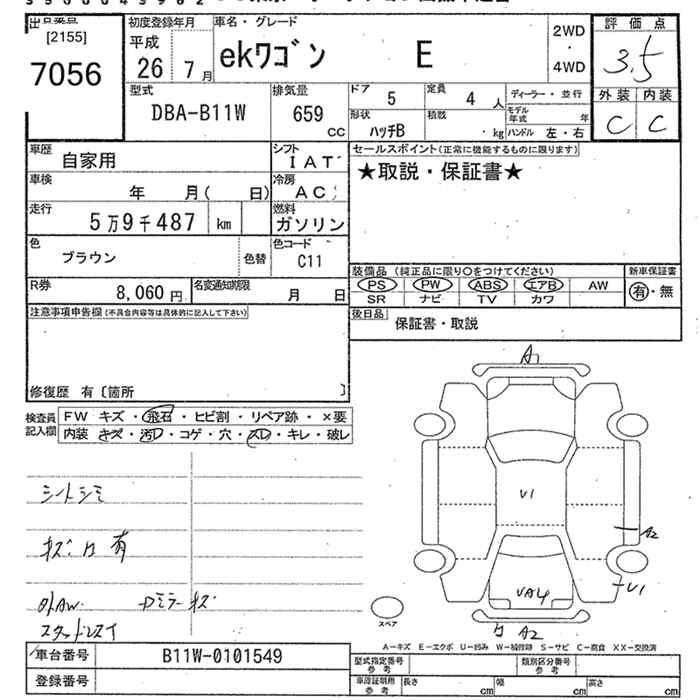 出品票品 [2155]
7056
初度登録年月
平成
26 7月
車名・グレード
ekワゴン E
2WD
・
4WD
評価点
3.5
外装 内装
C C
型式
DBA-B11W
排気量
659 CC
ドア 5
定員 4人
ディーラー・並行
モデル年式 年
形状 ハッチB
積載 ・kg
ハンドル 左・右
車歴 自家用
シフト IAT
セールスポイント(正常に機能するものに限ります)
★取説・保証書★
車検 年 月( 日)
冷房 AC
走行 5万9千487 km
燃料 ガソリン
色 ブラウン
色替
色コード C11
装備品 (純正品に限り〇をつけてください)
新車保証書
PS PW ABS エアB AW
有・無
SR ナビ TV カワ
R券 8,060円
名変通知期限 月 日
後日品 保証書・取説
注意事項申告欄(不具合内容等は具体的に記入して下さい)
修復歴 有〔箇所 〕
検査員記入欄
FW キズ・飛石・ヒビ割・リペア跡・×要
内装 キズ・汚レ・コゲ・穴・スレ・キレ・破レ
シートシミ
キズ・凹 有
外AW.
ドミラーキズ
A1
V1
A2
V1
VA4
A2
スペア
A-キズ E-エクボ U-凹み W-補修跡 S-サビ C-腐食 XX-交換済
車台番号 B11W-0101549
登録番号
型式指定番号 参考
類別区分番号 参考
車庫証明用 参考
長さ cm 幅 cm 高さ cm